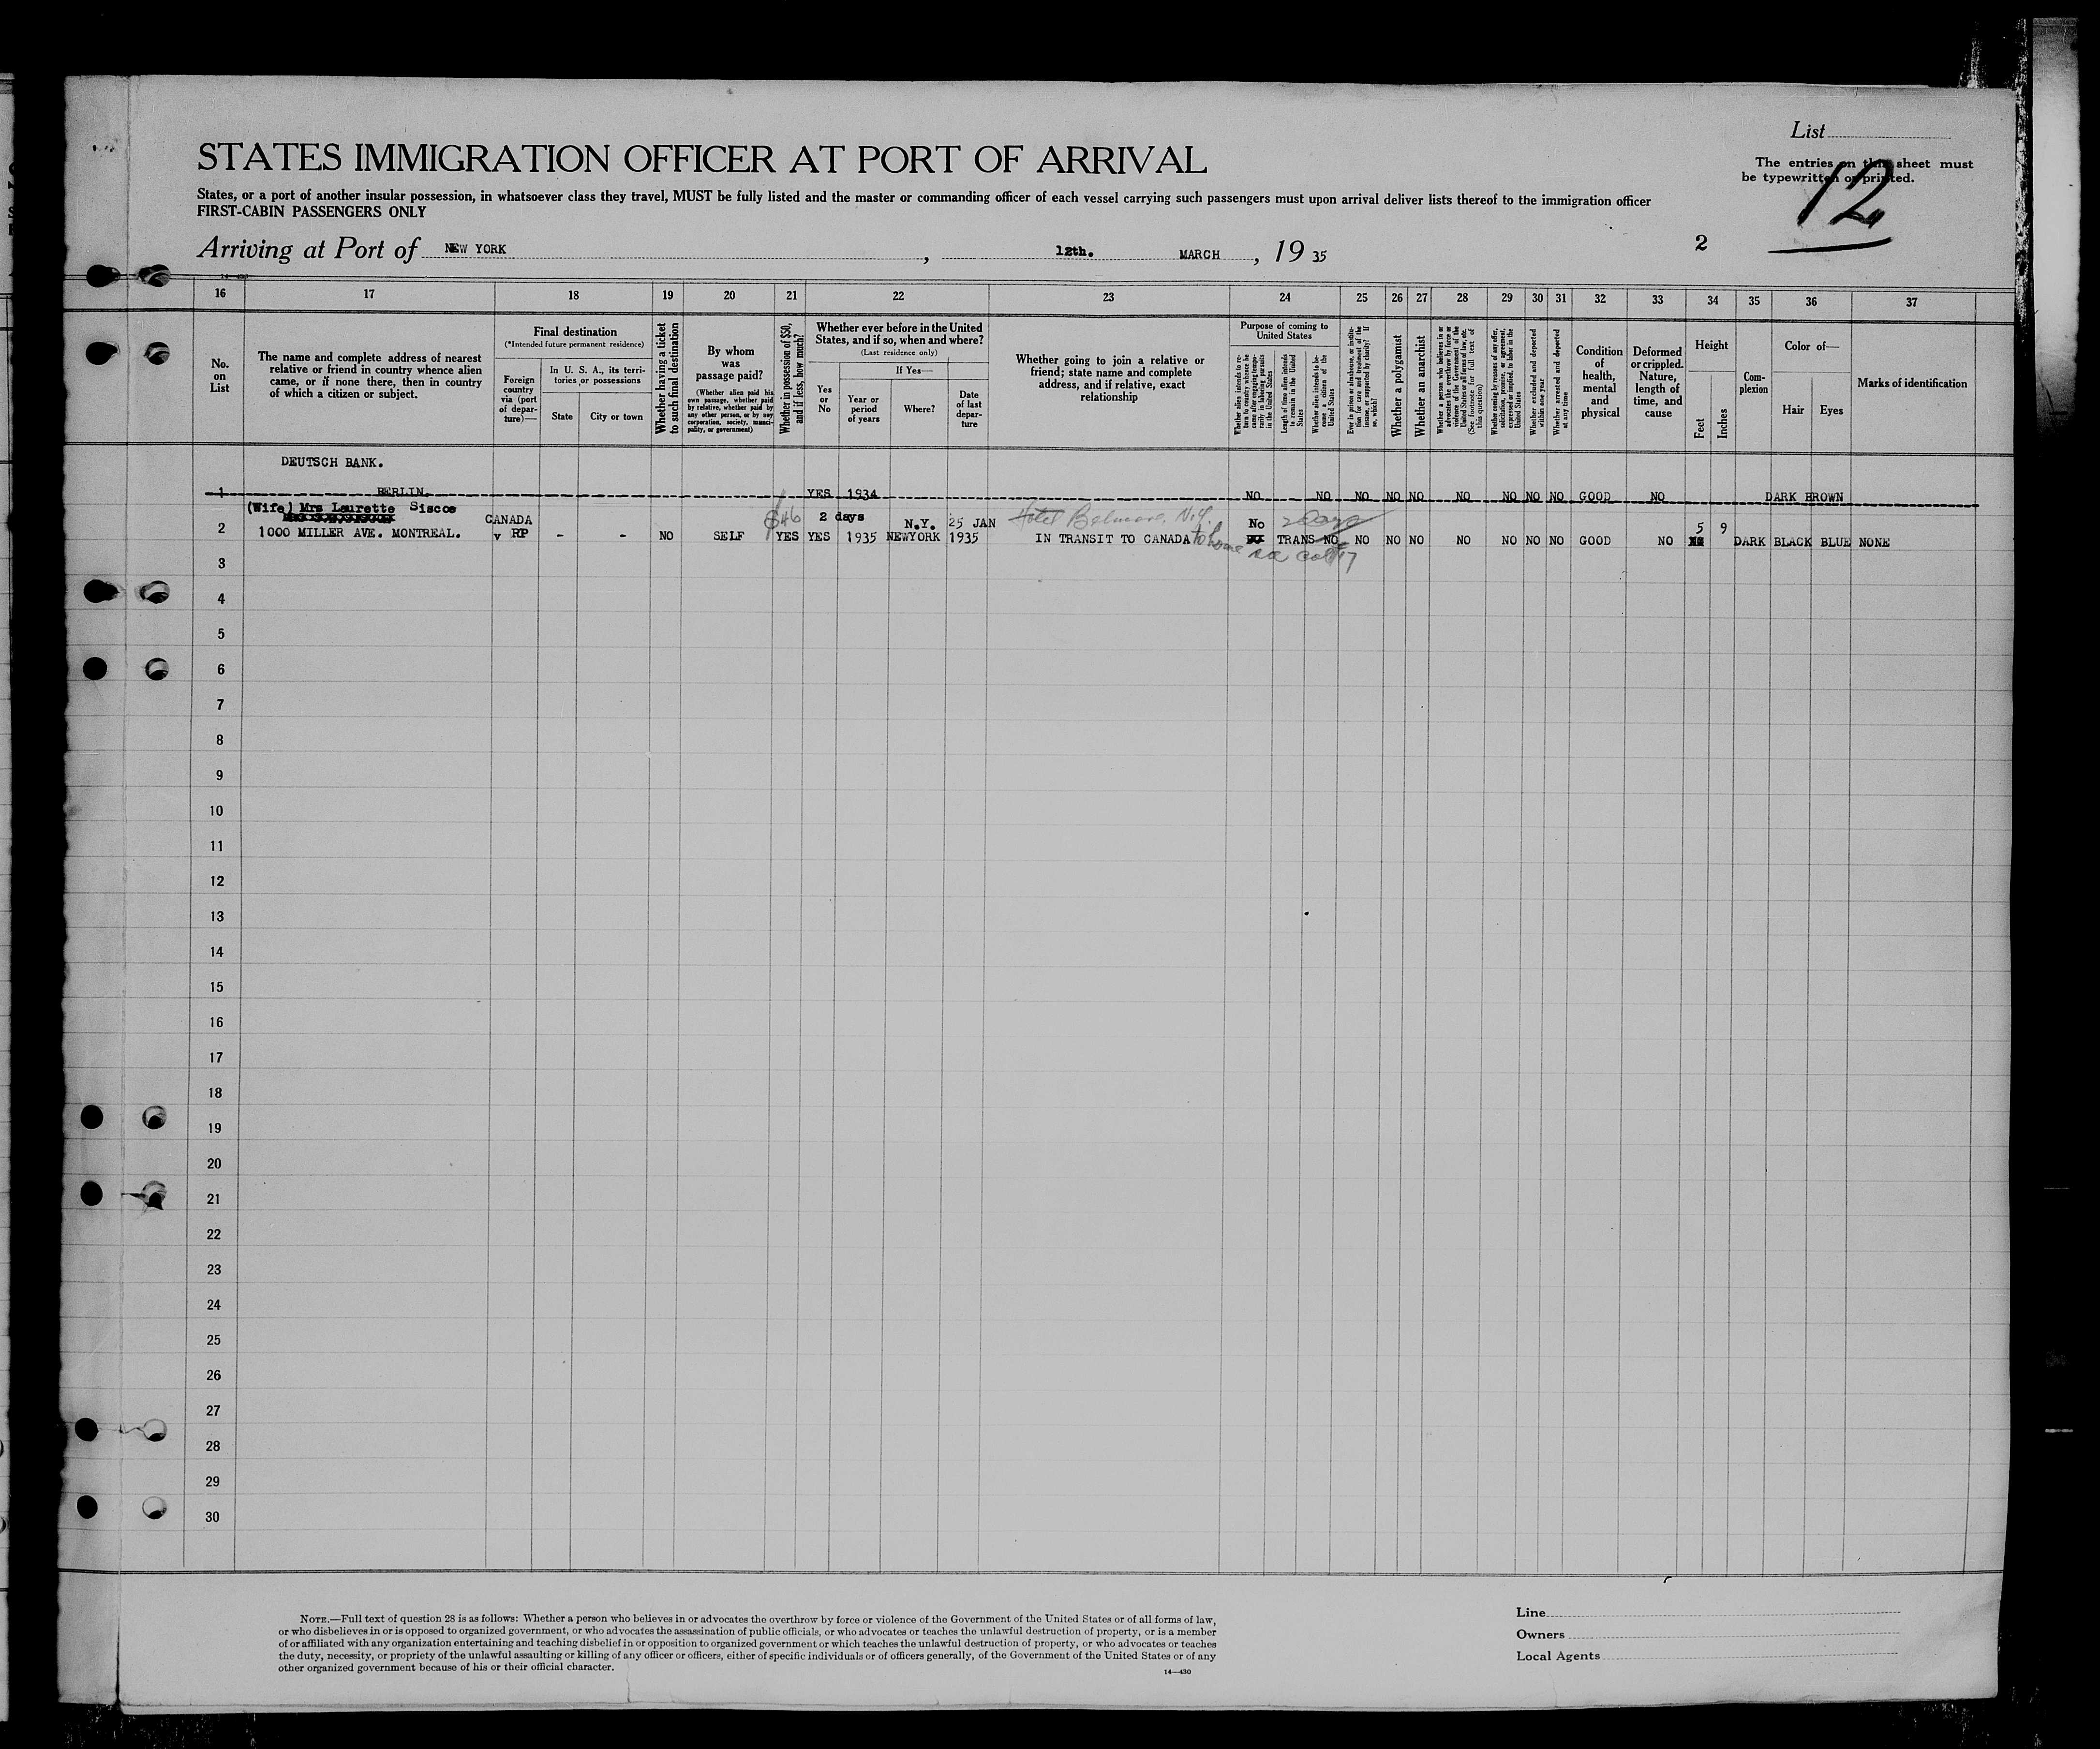 List
STATES IMMIGRATION OFFICER AT PORT OF ARRIVAL
The entries on this sheet must
be typewritten or printed.
12
States, or a port of another insular possession, in whatsoever class they travel, MUST be fully listed and the master or commanding officer of each vessel carrying such passengers must upon arrival deliver lists thereof to the immigration officer
FIRST-CABIN PASSENGERS ONLY
Arriving at Port of NEW YORK, 12th. MARCH, 19 35
2
16 17 18 19 20 21 22 23 24 25 26 27 28 29 30 31 32 33 34 35 36 37
No. on List
The name and complete address of nearest
relative or friend in country whence alien
came, or if none there, then in country
of which a citizen or subject.
Final destination
(*Intended future permanent residence)
Foreign country via (port of departure)—
In U. S. A., its territories or possessions
State
City or town
Whether having a ticket to such final destination
By whom was passage paid?
(Whether alien paid his own passage, whether paid by relative, whether paid by any other person, or by any corporation, society, municipality, or government)
Whether in possession of $50, and if less, how much?
Whether ever before in the United
States, and if so, when and where?
(Last residence only)
Yes or No
If Yes—
Year or period of years
Where?
Date of last departure
Whether going to join a relative or
friend; state name and complete
address, and if relative, exact
relationship
Purpose of coming to
United States
Whether alien intends to return to country whence he came after engaging temporarily in laboring pursuits in the United States
Length of time alien intends to remain in the United States
Whether alien intends to become a citizen of the United States
Ever in prison or almshouse, or institution for care and treatment of the insane, or supported by charity? If so, which?
Whether a polygamist
Whether an anarchist
Whether a person who believes in or advocates the overthrow by force or violence of the Government of the United States or all forms of law, etc. (See footnote for full text of this question)
Whether coming by reasons of any offer, solicitation, promise, or agreement, expressed or implied, to labor in the United States
Whether excluded and deported within one year
Whether arrested and deported at any time
Condition of health, mental and physical
Deformed or crippled. Nature, length of time, and cause
Height
Feet
Inches
Complexion
Color of—
Hair Eyes
Marks of identification
DEUTSCH BANK.
1 BERLIN. YES 1934 NO NO NO NO NO NO NO NO NO GOOD NO DARK BROWN
(Wife) Mrs Laurette Siscoe
CANADA $46 2 days N.Y. 25 JAN Hotel Belmore, N.Y. No 2 days 5 9
2 1000 MILLER AVE. MONTREAL. v RP - - NO SELF YES YES 1935 NEWYORK 1935 IN TRANSIT TO CANADA to home TRANS NO NO NO NO NO NO NO NO GOOD NO DARK BLACK BLUE NONE
3
4
5
6
7
8
9
10
11
12
13
14
15
16
17
18
19
20
21
22
23
24
25
26
27
28
29
30
NOTE.—Full text of question 28 is as follows: Whether a person who believes in or advocates the overthrow by force or violence of the Government of the United States or of all forms of law,
or who disbelieves in or is opposed to organized government, or who advocates the assassination of public officials, or who advocates or teaches the unlawful destruction of property, or is a member
of or affiliated with any organization entertaining and teaching disbelief in or opposition to organized government or which teaches the unlawful destruction of property, or who advocates or teaches
the duty, necessity, or propriety of the unlawful assaulting or killing of any officer or officers, either of specific individuals or of officers generally, of the Government of the United States or of any
other organized government because of his or their official character.
14—430
Line
Owners
Local Agents